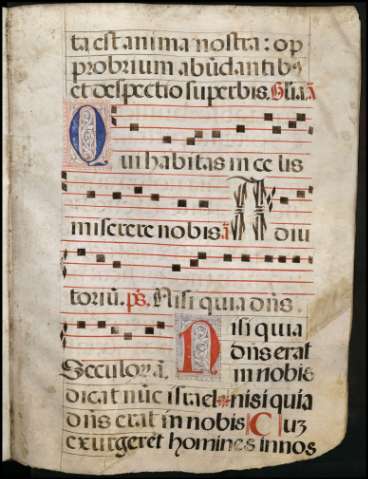 ta est anima nostra: op
probrium abūdantibꝰ
et despectio superbis. Gl̄ia. ā
Qui habitas in celis
miserere nobis. ā Adiu
toriū. p̄s. Nisi quia dn̄s.
Nisi quia
dn̄s erat
Seculorā. in nobis
dicat nūc israel: nisi quia
dn̄s erat in nobis Cuꝫ
exurgerēt homines in nos